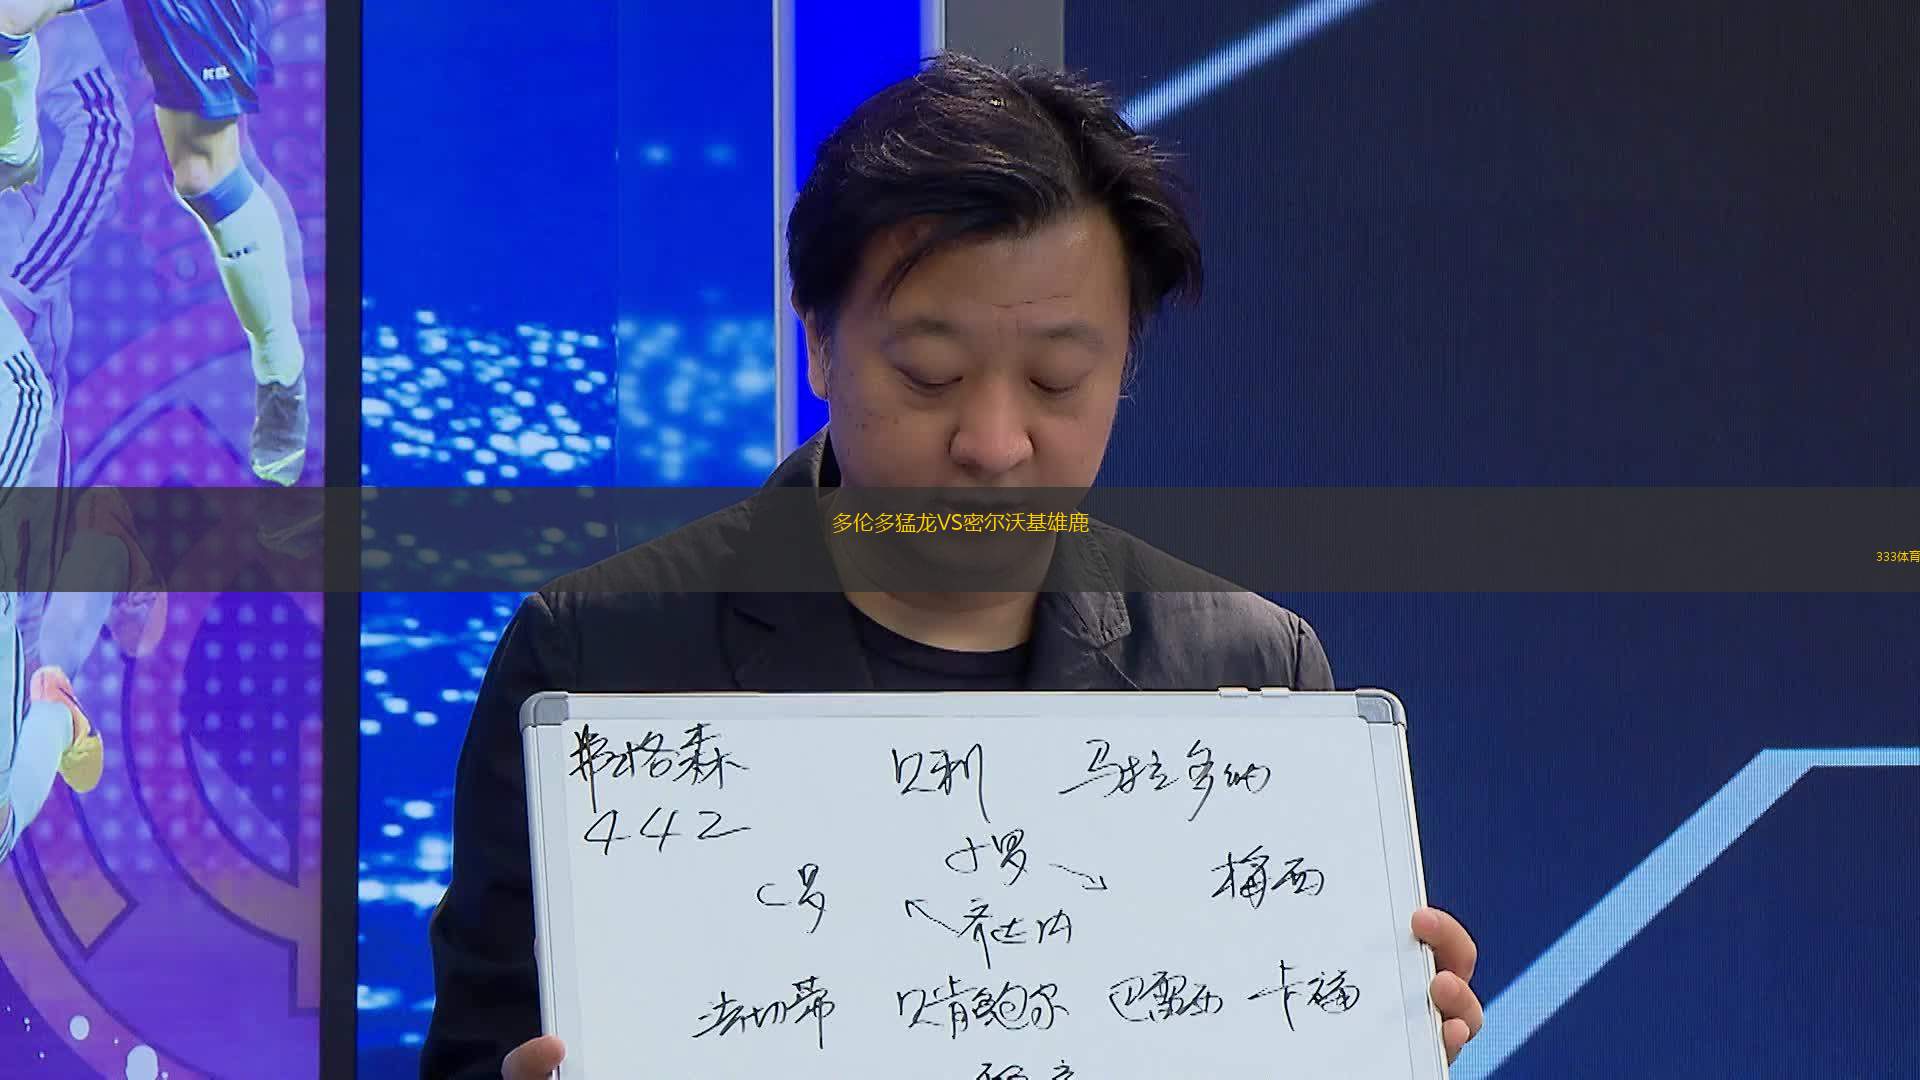 多伦多猛龙VS密尔沃基雄鹿
333体育
弗格森 贝利 马拉多纳
442
小罗
C罗 梅西
齐达内
法切蒂 贝肯鲍尔 巴雷西 卡福